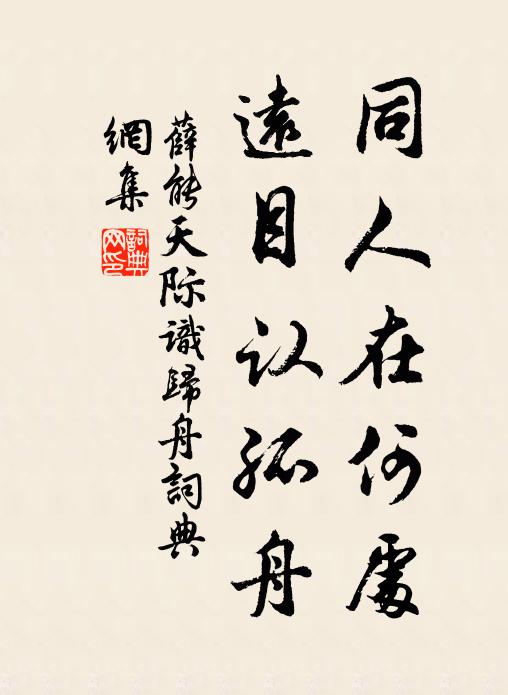 同人在何處
遠目认孤舟
薛能天际識歸舟詞典
網集
詞典
网印